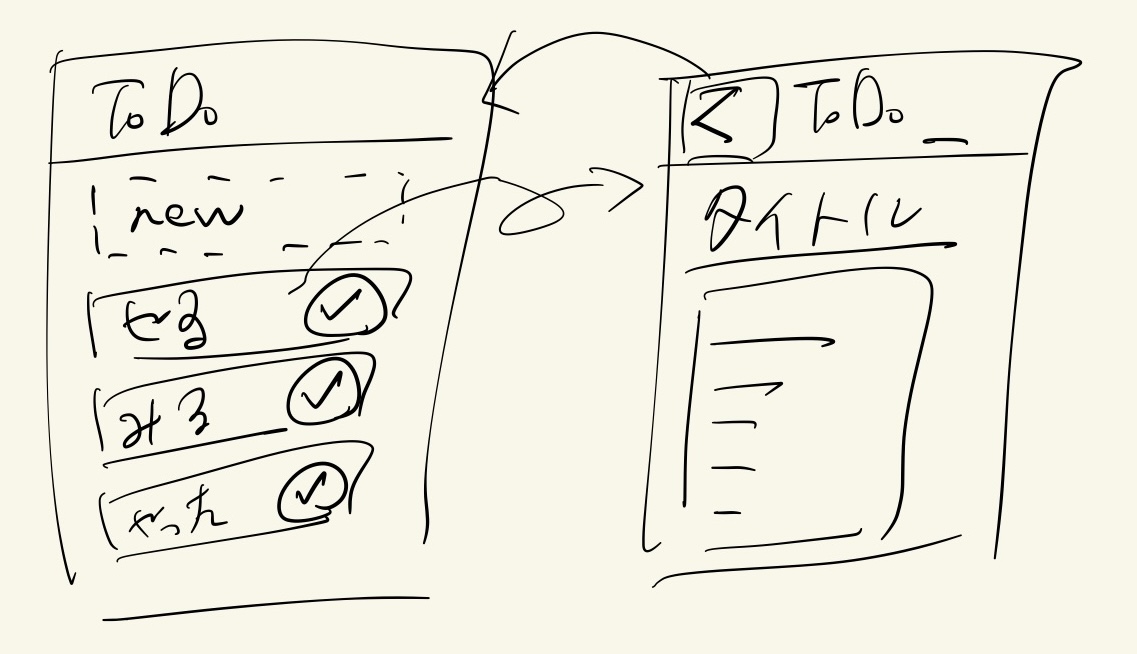 ToDo
new
やる
みる
やった
< ToDo
タイトル